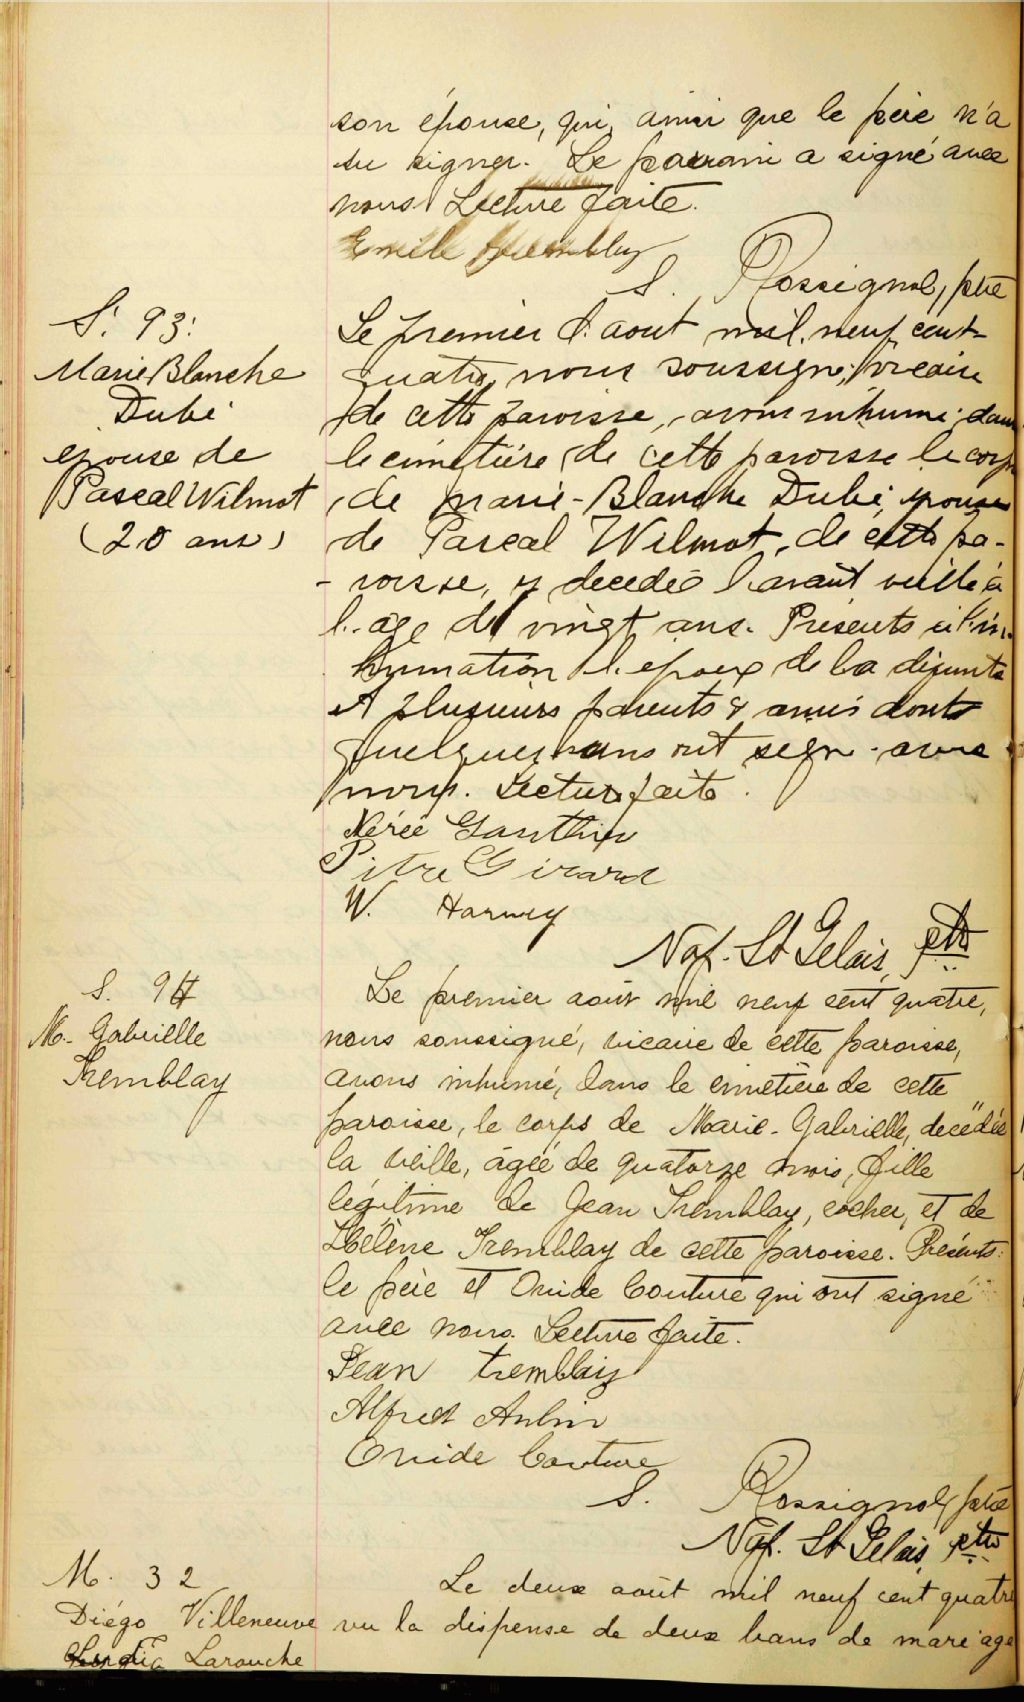 son épouse, qui, ainsi que le père n'a
su signer. Le parrain a signé avec
nous Lecture faite.
Emile Tremblay
S. Rossignol, ptre
S. 93.
Marie Blanche
Dubé
épouse de
Pascal Wilmot
(20 ans)
Le premier d'aout mil neuf cent
quatre, nous soussigné, vicaire
de cette paroisse, avons inhumé dans
le cimetière de cette paroisse le corps
de Marie-Blanche Dubé, épouse
de Pascal Wilmot, de cette pa-
-roisse, y decedée l'avant veille à
l'age de vingt ans. Présents à l'in-
humation l'epoux de la défunte
et plusieurs parents & amis dont
quelques uns ont signé avec
nous. Lecture faite.
Nérée Gauthier
Pitre Girard
W. Harvey
Nap. St Gelais, ptre
S. 94
M.- Gabrielle
Tremblay
Le premier août mil neuf cent quatre,
nous soussigné, vicaire de cette paroisse,
avons inhumé, dans le cimetière de cette
paroisse, le corps de Marie-Gabrielle, decédée
la veille, âgée de quatorze mois, fille
légitime de Jean Tremblay, cocher, et de
Hélène Tremblay de cette paroisse. Présents:
le père et Ovide Couture qui ont signé
avec nous. Lecture faite.
Jean tremblay
Alfred Aubin
Ovide Couture
S. Rossignol, ptre
Nap. St Gelais, ptre
M. 32
Diégo Villeneuve
Larouche
Le deux août mil neuf cent quatre
vu la dispense de deux bans de mariage